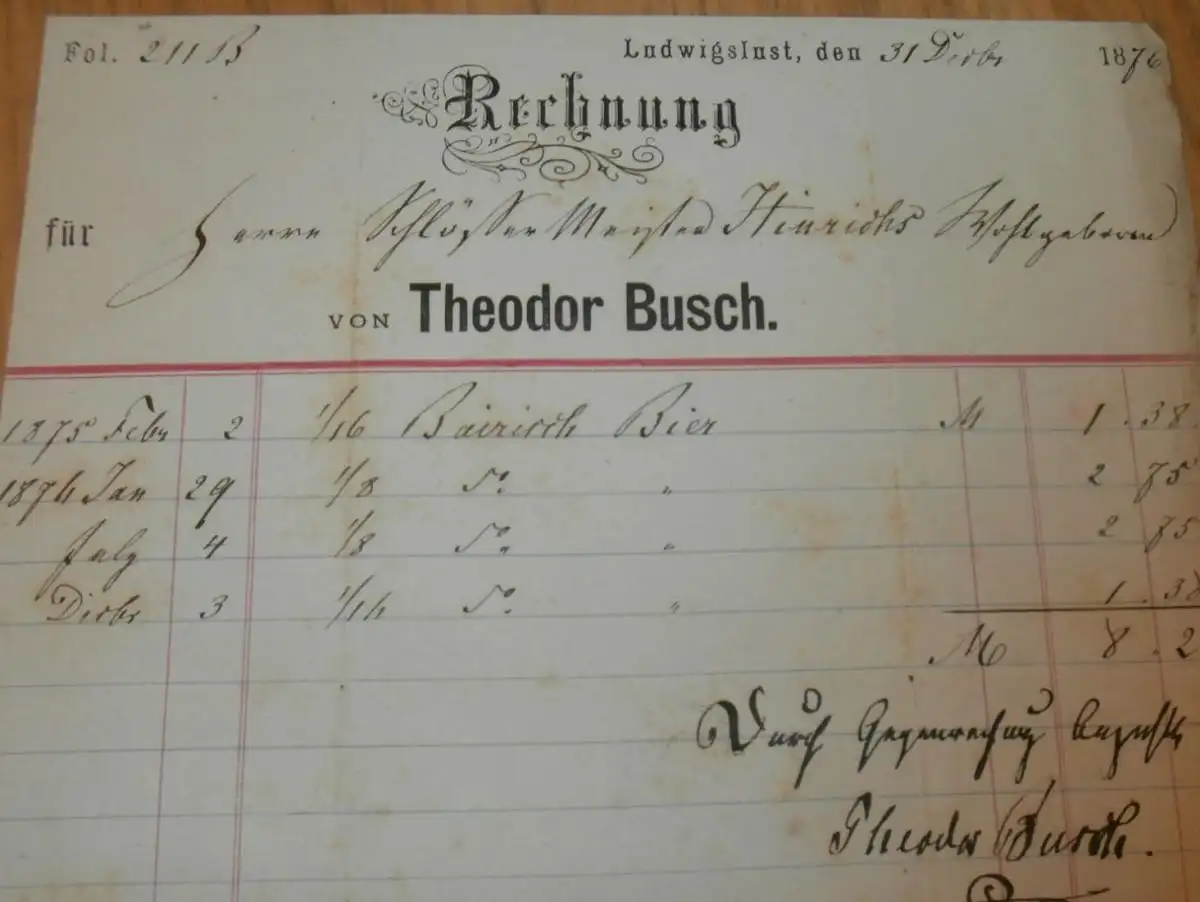 Fol. 211 B Ludwigslust, den 31 Decbr 1876
Rechnung
für Herrn Schlösser Meister Hinrichs Wohlgeboren
VON Theodor Busch.
1875 Febr 2 1/16 Bairisch Bier M 1.38
1876 Jan 29 1/8 do. " 2 75
July 4 1/8 do. " 2 75
Decbr 3 1/16 do. " 1.38
M 8.2
Durch Gegenrechnung bezahlt
Theodor Busch.